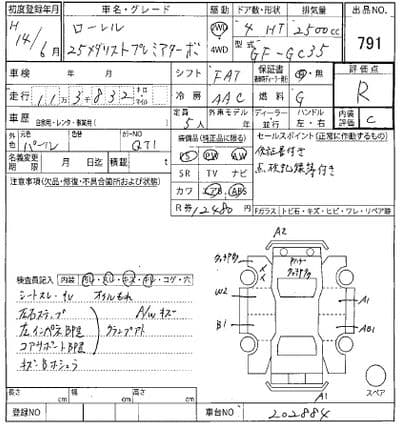 初度登録年月 車名・グレード 駆動 ドア数・形状 排気量 出品NO
H 14/6月 ローレル 2WD 4 HT 2500cc 791
25メダリストプレミアターボ 4WD 型式 GF-GC35
車検 年 月 シフト FAT 保証書 有・無 評価点
走行 11万3,832 キロ マイル 冷房 AAC 燃料 G R
車歴 自家用・レンタ・事業用( ) 定員 5人 外車モデル 年 ディーラー 並行 ハンドル 左・右 内装 C
外色 元色 パール カラーNO QT1 装備品(純正品に限る) セールスポイント(正常に動作するもの)
PS PW AW 保証書付き
名義変更期限 月 日迄 積載 t SR TV ナビ 点検記録簿付き
注意事項(欠品・修復・不具合箇所および状態) カワ エアB ABS
R券 12480円
Fガラス(トビ石・キズ・ヒビ・ワレ・リペア跡
A2
検査員記入 内装 コゲ・穴
W2
A1
シートスレ オイルもれ
左右ステップ A/Wキズ
B1
左インパネ部
コアサポート部
キズ・
A1
スペア
長さ cm 幅 cm 高さ cm
登録NO 車台NO 202884